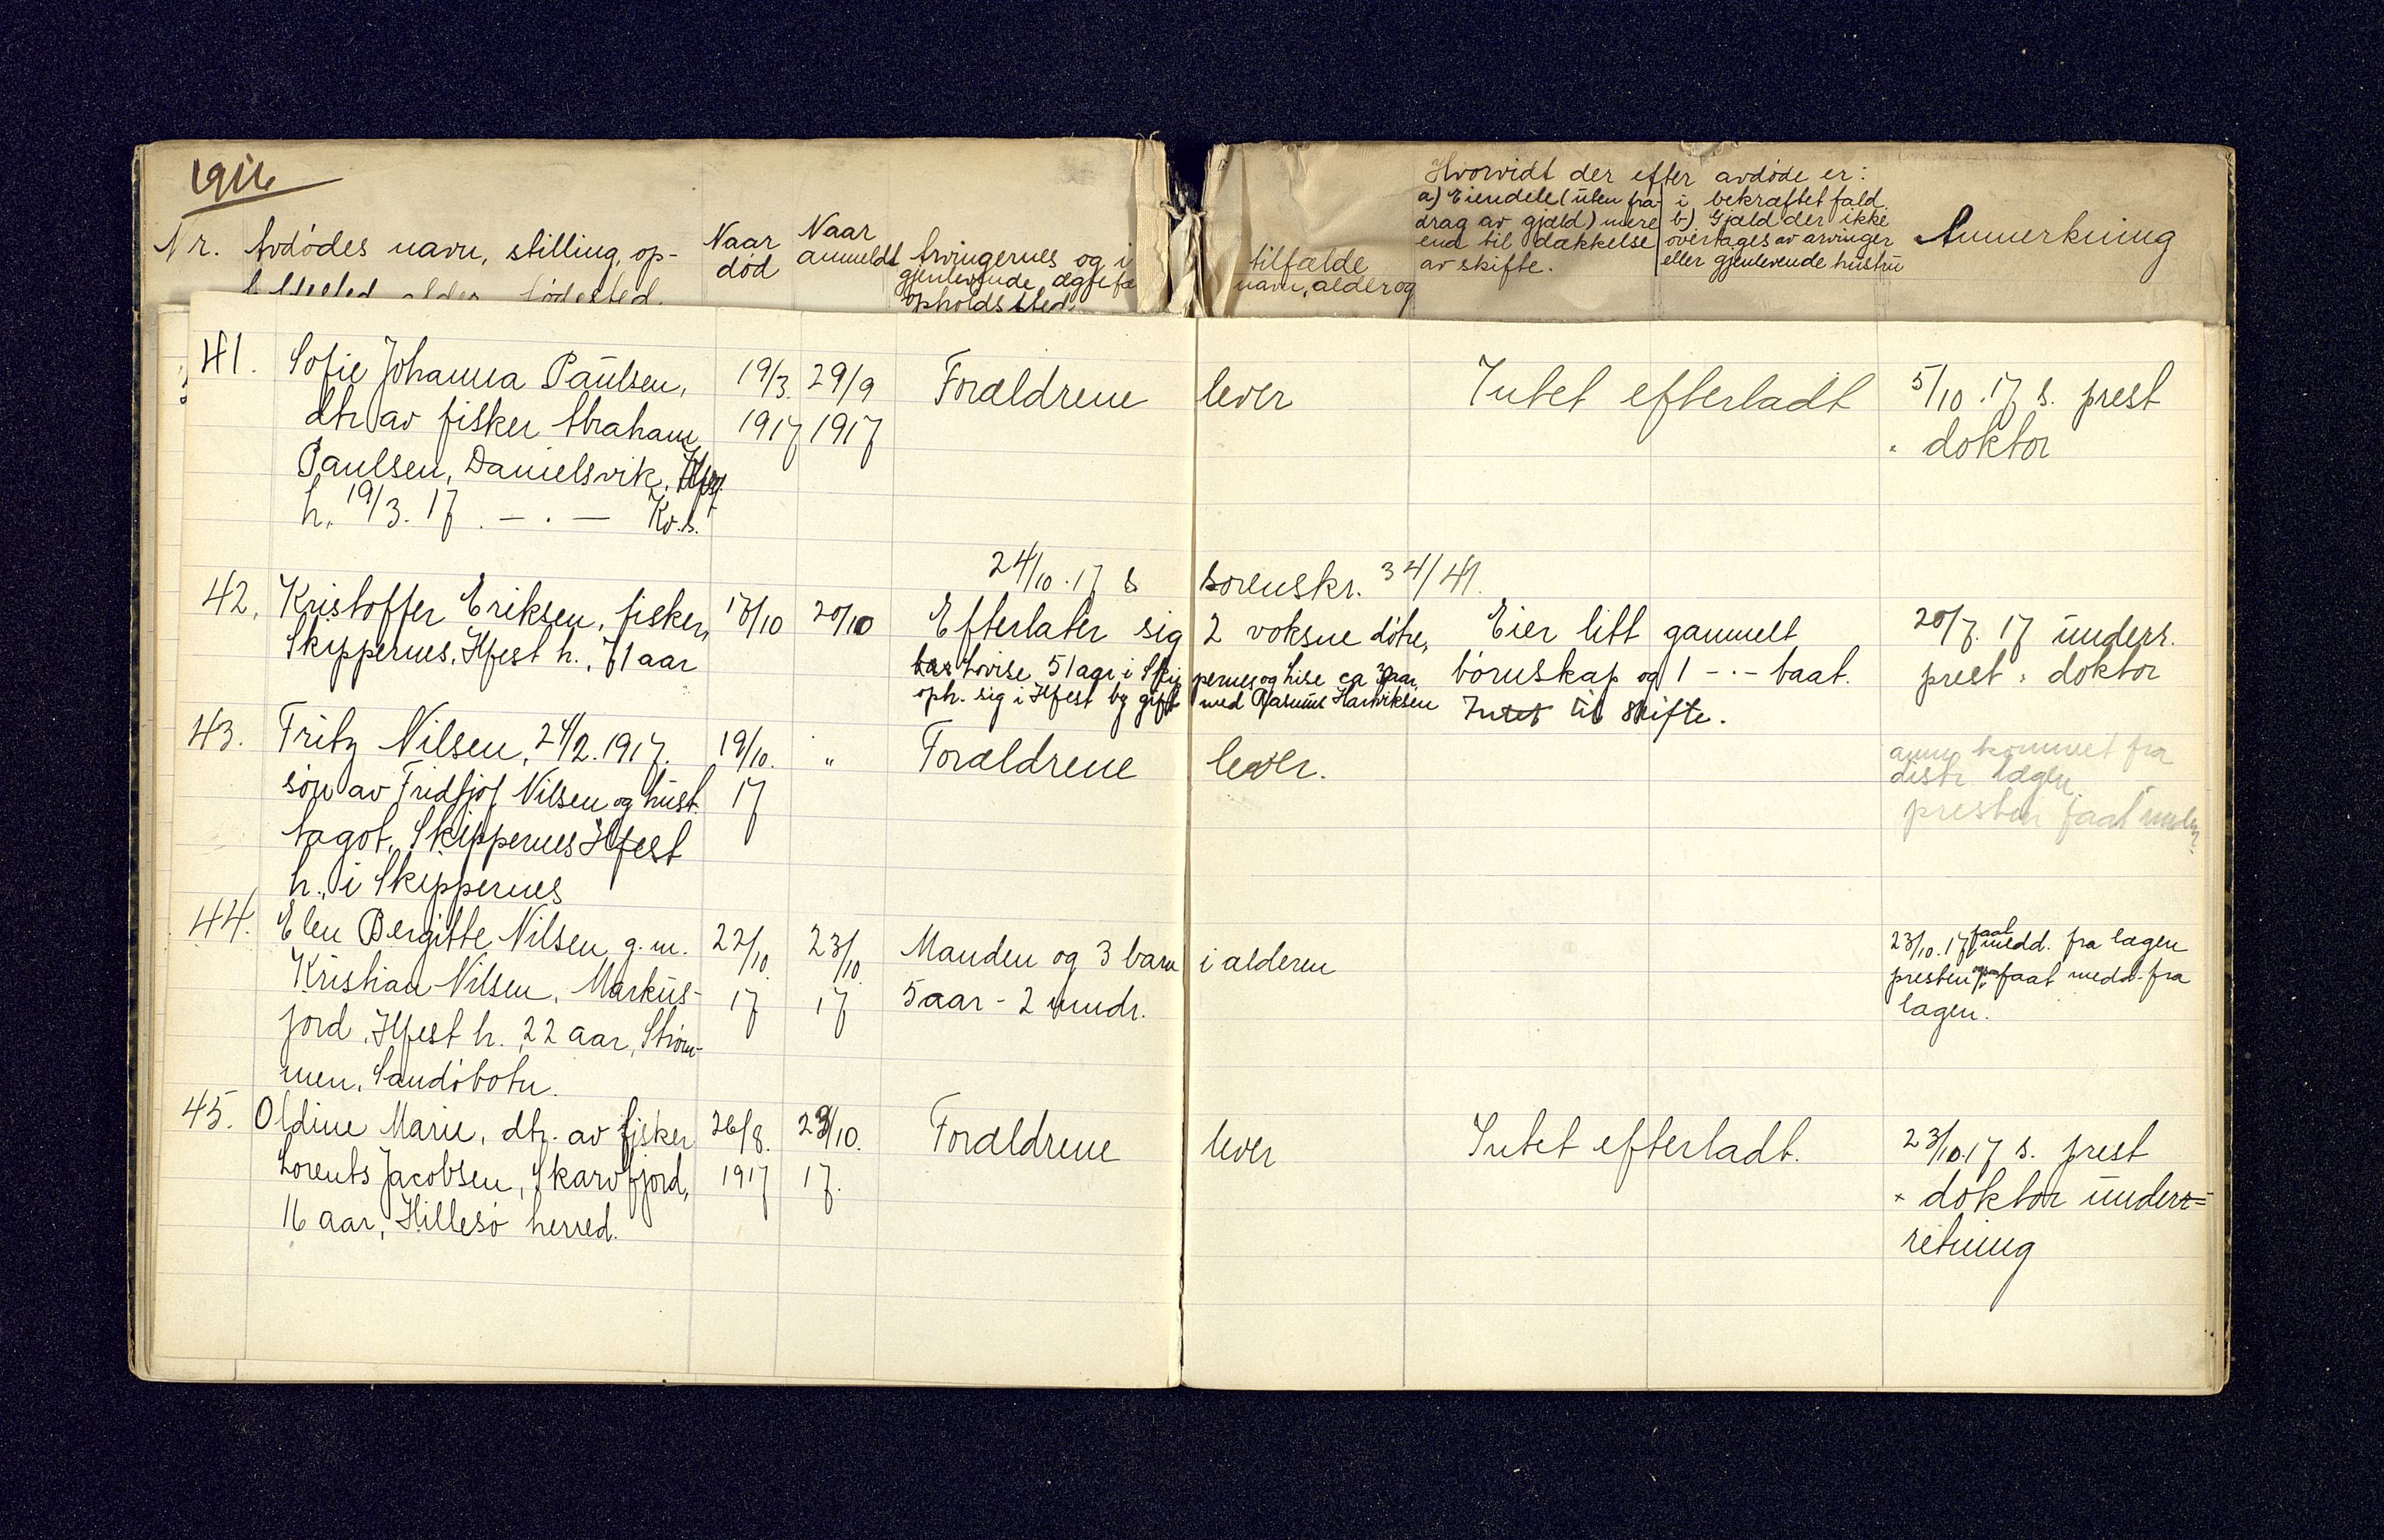 1916
Nr.
Avdødes navn, stilling, op-
Naar
død
Naar
anmeldt
Arvingernes og i
gjenlevende ægtefæ
opholdssted.
tilfælde
navn, alder og
Hvorvidt der efter avdøde er:
a) Eiendele (uten fra-
drag av gjæld) mere
end til dækkelse
av skifte.
i bekræftet fald
b) Gjæld der ikke
overtages av arvinger
eller gjenlevende hustru
Anmerkning
41. Sofie Johanna Paulsen, 19/3. 29/9 Forældrene lever Intet efterladt 5/10.17 s. prest
dtr. av fisker Abraham 1917 1917 " doktor
Paulsen, Danielsvik, Hfest
h. 19/3. 17. - . - Kv.s.
24/10. 17 s sorenskr. 34/41.
42. Kristoffer Eriksen, fisker, 18/10 20/10 Efterlater sig 2 voksne døtre, Eier litt gammelt 20/7. 17 underr.
Skippernes, Hfest h., 71 aar Lovise 51 aar i Skip pernes og Lise ca aar børnskap og 1 - . - baat. prest " doktor
oph. sig i Hfest by gift med Rasmus Hartviksen Intet til skifte.
43. Fritz Nilsen, 24/2. 1917. 19/10. " Forældrene lever. anm kommet fra
søn av Fridtjof Nilsen og hust. 17 distr lægen
Aagot, Skippernes Hfest presten faat underr.
h., i Skippernes
44. Elen Bergitte Nilsen g. m. 22/10. 23/10. Manden og 3 barn i alderen 23/10. 17 faat medd. fra lægen
Kristian Nilsen, Markus- 17 17 5 aar - 2 mndr. presten også faat medd. fra
fjord, Hfest h. 22 aar, Strøm- lægen.
men, Sandøbotn.
45. Oldine Marie, dtr. av fisker 26/8. 23/10. Forældrene lever Intet efterladt. 23/10.17 s. prest
Lorents Jacobsen, Skarvfjord, 1917 17. " doktor under-
16 aar, Hillesø herred.
retning